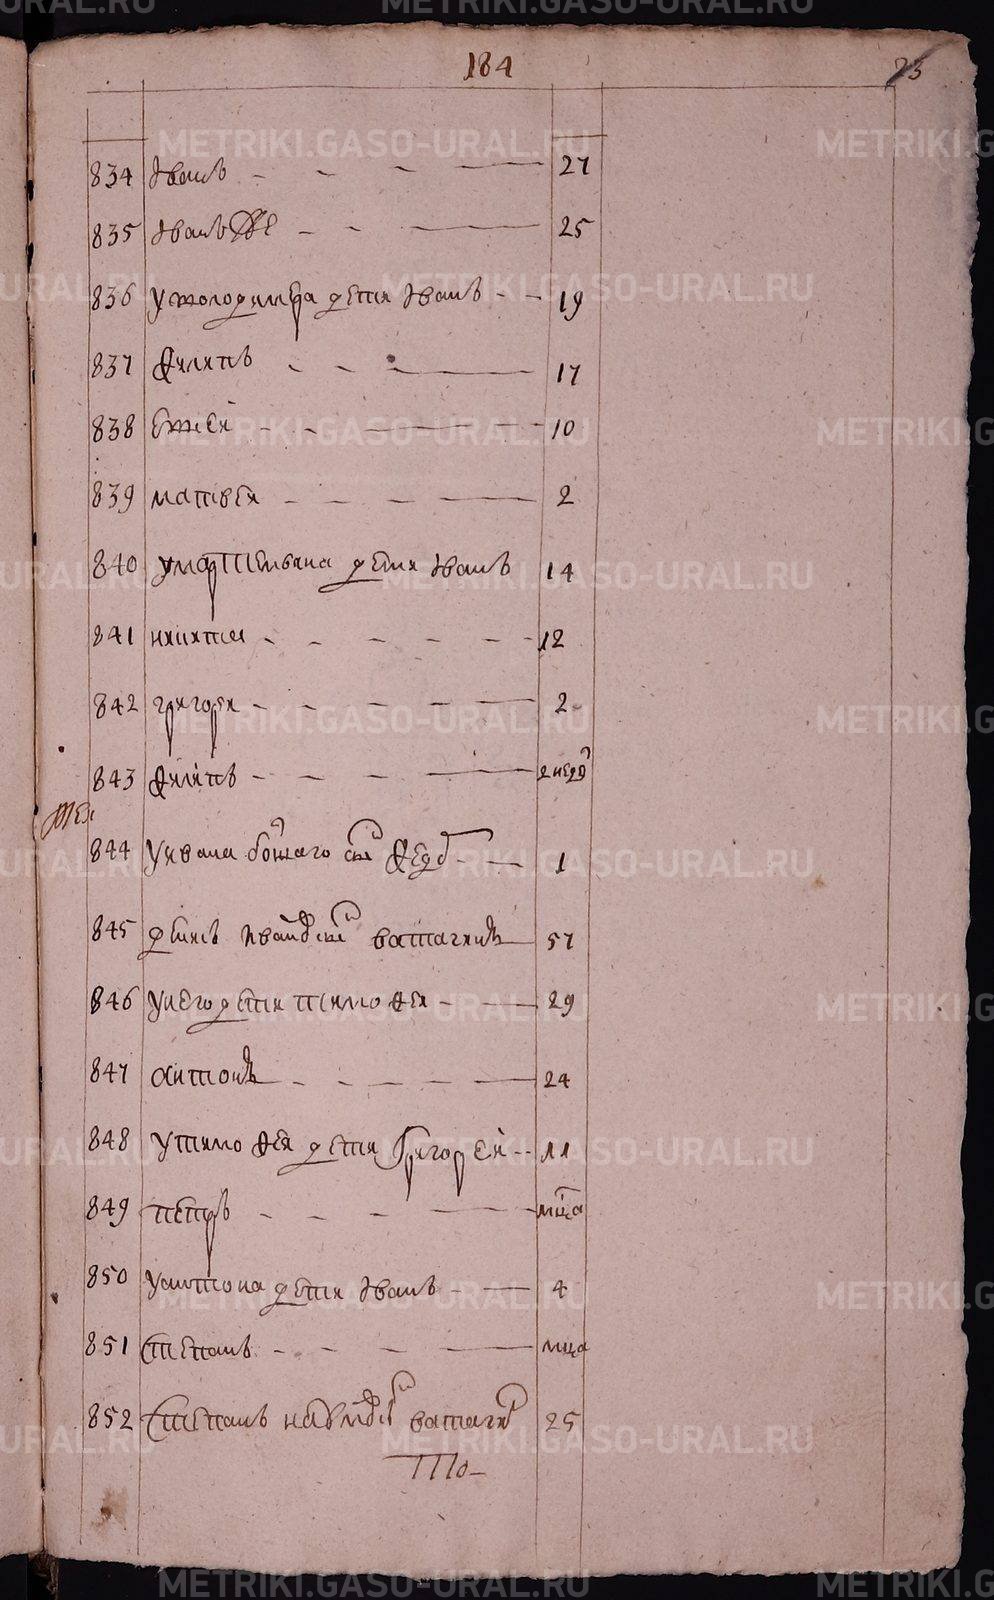 184
834 Иванъ 27
835 Иванъ же 25
836 у володимера дети Иванъ 19
837 Филипъ 17
838 Евсей 10
839 матвеи 2
840 умартемьяна дети Иванъ 14
841 никита 12
842 григореи 2
843 Филипъ 2 недѣ
844 уивана сынъ Федоръ 1
845 денисъ ивановъ сынъ ватагинъ 57
846 унего дети тимофеи 29
847 антонъ 24
848 утимофея дети Григорей 11
849 петръ мца
850 уантона дети Иванъ 4
851 Степанъ мца
852 Степанъ наумовъ сынъ ватагинъ 25